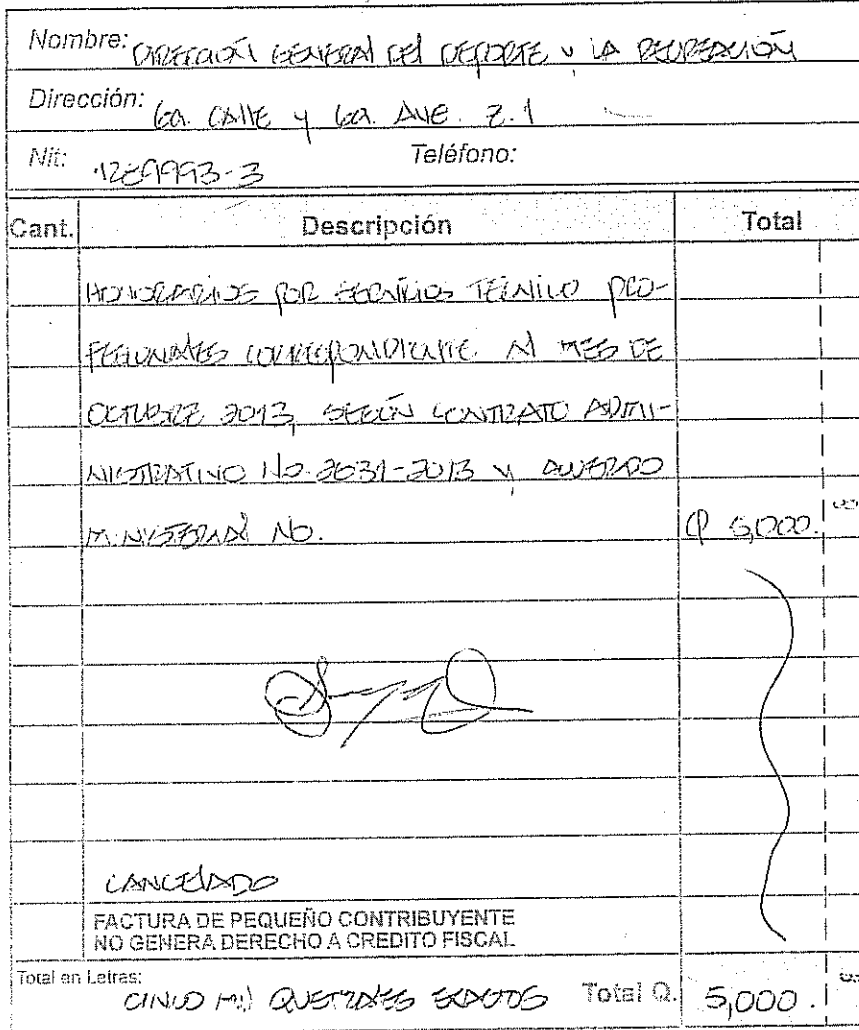 Nombre: DIRECCIÓN GENERAL DEL DEPORTE Y LA RECREACIÓN
Dirección: 6a. CALLE y 6a. AVE. Z.1
Nit: Teléfono:
Cant. Descripción Total
HONORARIOS POR SERVICIOS TÉCNICO PRO-
FESIONALES CORRESPONDIENTE AL MES DE
OCTUBRE 2013, SEGÚN CONTRATO ADMI-
NISTRATIVO No. 2031-2013 y ACUERDO
MINISTERIAL NO. Q 5,000.
CANCELADO
FACTURA DE PEQUEÑO CONTRIBUYENTE
NO GENERA DERECHO A CREDITO FISCAL
Total en Letras: CINCO MIL QUETZALES EXACTOS Total Q. 5,000.